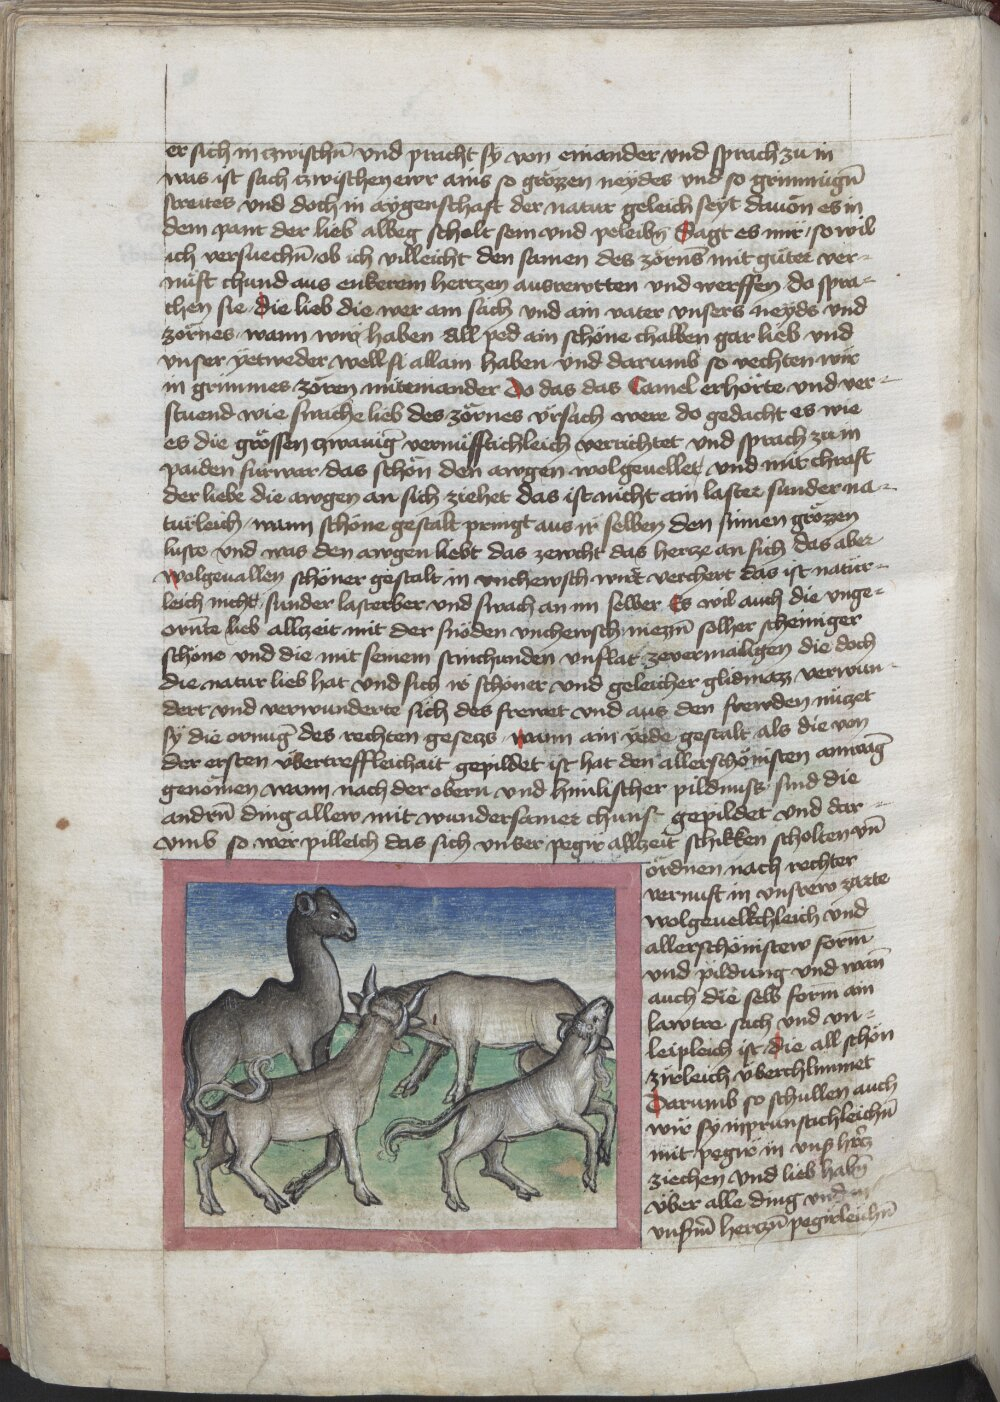 er sich in zwischn̄ vnd pracht sy von einander vnd sprach zu in
was ist sach zwischen ewr ains so grözzen neydes vnd so grimmign̄
streites vnd doch in aygenschaft der natur geleich seyt dauon es in
dem pant der lieb albeg scholt sein vnd peleibn̄ Sagt es mir so wil
ich versuechn̄ ob ich villeicht den samen des zorns mit güter ver-
nuft chund aus enkerem hertzen ausrewtten vnd werffen do spra-
chen sie die lieb die wer ain sach vnd ain vater vnsers neyds vnd
zörnes wann wir haben all ped ain schöne chalben gar lieb vnd
vnser yetweder well si allain haben vnd darumb so vechten wir
in grimmes zören miteinander Do das das Camel erhörte vnd ver-
stuend wie swache lieb des zörnes vrsach were do gedacht es wie
es die grössen zwaiüḡ vernüfftichleich verrichtet vnd sprach zu in
paiden fürwar das schön den awgen wolgeuellet vnd mit chraft
der liebe die awgen an sich ziehet das ist nicht ain laster sunder na-
türleich wann schöne gestalt pringt aus ir selben den sinnen grözzen
luste vnd was den awgen liebt das zewcht das hercze an sich das aber
wolgeuallen schöner gestalt in vnchewsch wirt verchert das ist natür-
leich nicht sunder lasterber vnd swach an im selber Es wil auch die vnge-
ornte lieb allzeit mit der snöden vnchewsch niezn̄ solher scheiniger
schöne vnd die mit seinem stinchunden vnflat zevermailigen die doch
die natur lieb hat vnd sich ir schöner vnd geleicher glidmazz verwun-
dert vnd verwunderte sich des frewet vnd aus den frewden nüzet
sy die ornūg des rechten gesetzs wann ain yede gestalt als die von
der ersten vbertreffleichait gepildet ist hat den allerschönisten anuāg
genomen wann nach der obern vnd himlischer pildnuss sind die
andrn̄ ding allew mit wundersamer chunst gepildet vnd dar-
vmb so wer pilleich das sich vnser pegir allzeit schikken scholten vn̄
ördnen nach rechter
vernuft in vnsrew zarte
wolgeuelkchleich vnd
allerschönistew form
vnd pildung vnd wan̄
auch die selb form ain
lawtre sach vnd vn-
leipleich ist die all schön
zirleich vberchlimmet
Darumb so schullen auch
wir sy inprünstichleichn̄
mit pegir in vns̄ hertz
ziechen vnd lieb habn̄
vber alle ding vnd in
vnserm̄ hertzn̄ pegirleichn̄